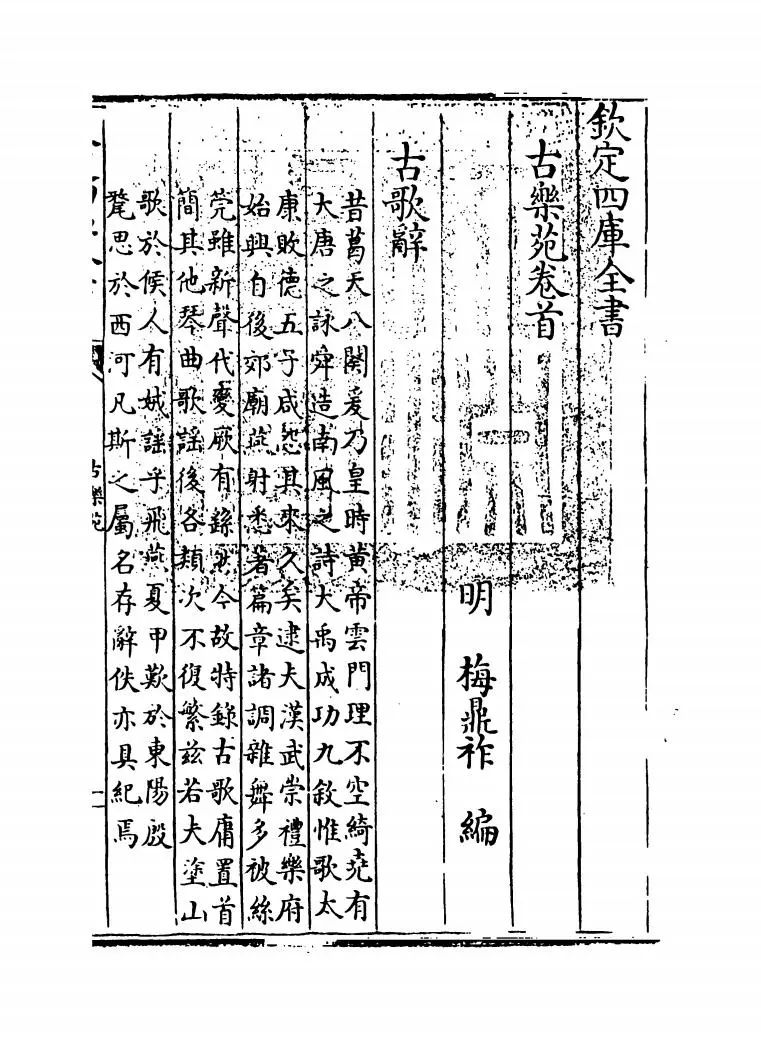 欽定四庫全書
古樂苑卷首
明 梅鼎祚 編
古歌辭
昔葛天八闋爰乃皇時黄帝雲門理不空綺堯有
大唐之詠舜造南風之詩大禹成功九敘惟歌太
康敗德五子咸怨其來久矣逮夫漢武崇禮樂府
始興自後郊廟燕射悉著篇章諸調雜舞多被絲
筦雖新聲代變厥有繇今故特錄古歌庸置首
簡其他琴曲歌謡後各類次不復繁兹若夫塗山
歌於候人有娀謡乎飛燕夏甲歎於東陽殷
氂思於西河凡斯之屬名存辭佚亦具紀焉
古樂苑
一